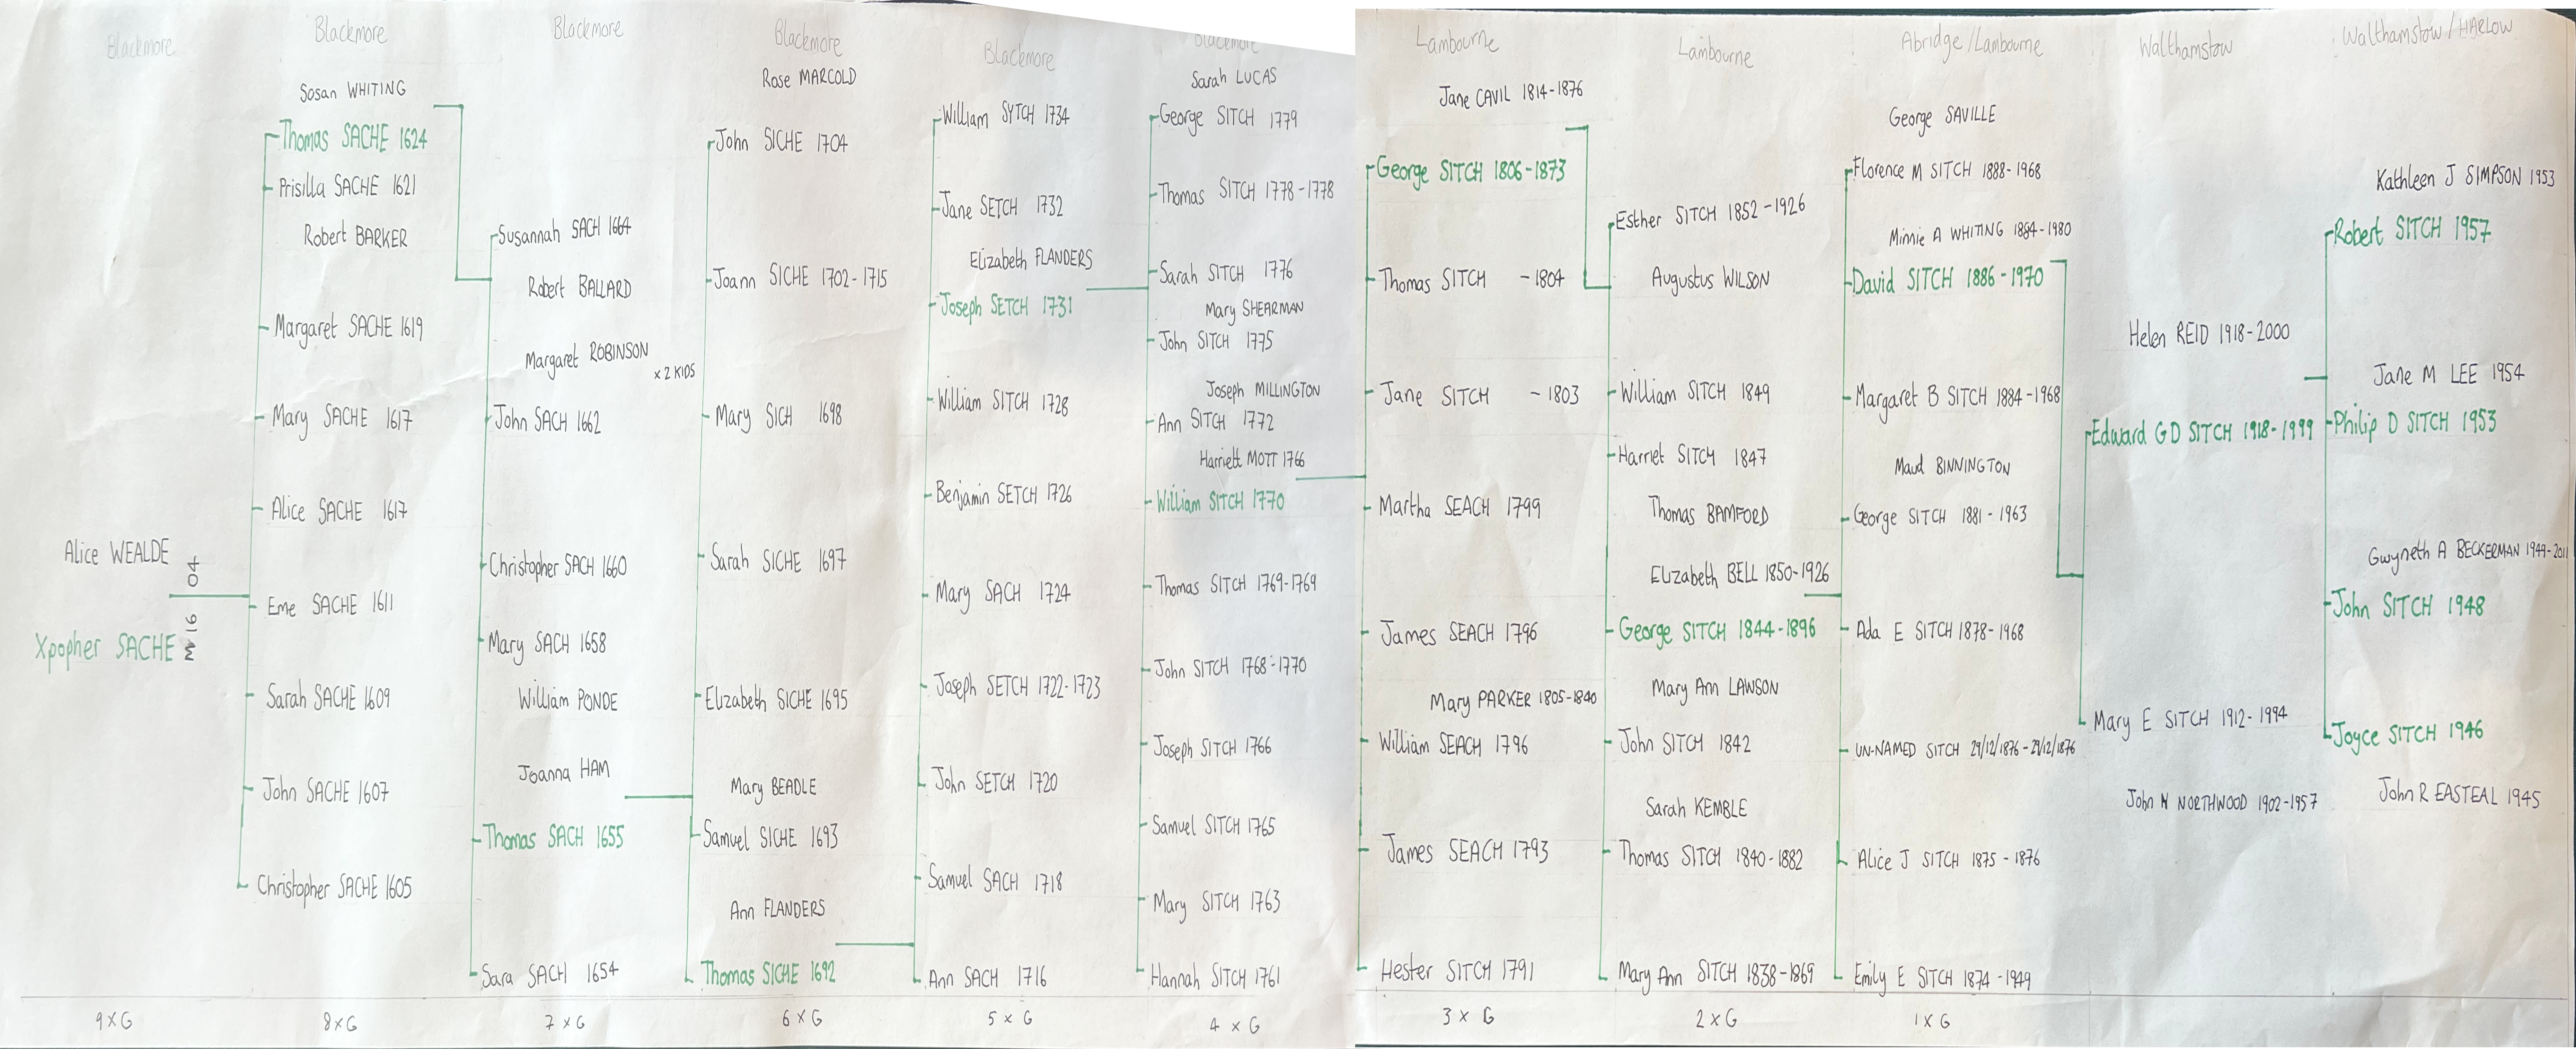 Blackmore
Alice WEALDE
Xpopher SACHE
M 16 04
9 x G
Blackmore
Sosan WHITING
Thomas SACHE 1624
Prisilla SACHE 1621
Robert BARKER
Margaret SACHE 1619
Mary SACHE 1617
Alice SACHE 1617
Eme SACHE 1611
Sarah SACHE 1609
John SACHE 1607
Christopher SACHE 1605
8 x G
Blackmore
Susannah SACH 1664
Robert BALLARD
Margaret ROBINSON
x 2 KIDS
John SACH 1662
Christopher SACH 1660
Mary SACH 1658
William PONDE
Joanna HAM
Thomas SACH 1655
Sara SACH 1654
7 x G
Blackmore
Rose MARCOLD
John SICHE 1704
Joann SICHE 1702-1715
Mary SICH 1698
Sarah SICHE 1697
Elizabeth SICHE 1695
Mary BEADLE
Samuel SICHE 1693
Ann FLANDERS
Thomas SICHE 1692
6 x G
Blackmore
William SYTCH 1734
Jane SETCH 1732
Elizabeth FLANDERS
Joseph SETCH 1731
William SITCH 1728
Benjamin SETCH 1726
Mary SACH 1724
Joseph SETCH 1722-1723
John SETCH 1720
Samuel SACH 1718
Ann SACH 1716
5 x G
Blackmore
Sarah LUCAS
George SITCH 1779
Thomas SITCH 1778-1778
Sarah SITCH 1776
Mary SHEARMAN
John SITCH 1775
Joseph MILLINGTON
Ann SITCH 1772
Harriett MOTT 1766
William SITCH 1770
Thomas SITCH 1769-1769
John SITCH 1768-1770
Joseph SITCH 1766
Samuel SITCH 1765
Mary SITCH 1763
Hannah SITCH 1761
4 x G
Lambourne
Jane CAVIL 1814-1876
George SITCH 1806-1873
Thomas SITCH -1804
Jane SITCH -1803
Martha SEACH 1799
James SEACH 1796
Mary PARKER 1805-1840
William SEACH 1796
James SEACH 1793
Hester SITCH 1791
3 x G
Lambourne
Esther SITCH 1852-1926
Augustus WILSON
William SITCH 1849
Harriet SITCH 1847
Thomas BAMFORD
Elizabeth BELL 1850-1926
George SITCH 1844-1896
Mary Ann LAWSON
John SITCH 1842
Sarah KEMBLE
Thomas SITCH 1840-1882
Mary Ann SITCH 1838-1869
2 x G
Abridge/Lambourne
George SAVILLE
Florence M SITCH 1888-1968
Minnie A WHITING 1884-1980
David SITCH 1886-1970
Margaret B SITCH 1884-1968
Maud BINNINGTON
George SITCH 1881-1963
Ada E SITCH 1878-1968
UN-NAMED SITCH 29/12/1876-29/12/1876
Alice J SITCH 1875-1876
Emily E SITCH 1874-1949
1 x G
Walthamstow
Helen REID 1918-2000
Edward G D SITCH 1918-1999
Mary E SITCH 1912-1994
John NORTHWOOD 1902-1957
Walthamstow/HARLOW
Kathleen J SIMPSON 1953
Robert SITCH 1957
Jane M LEE 1954
Philip D SITCH 1953
Gwyneth A BECKERMAN 1949-2011
John SITCH 1948
Joyce SITCH 1946
John R EASTEAL 1945